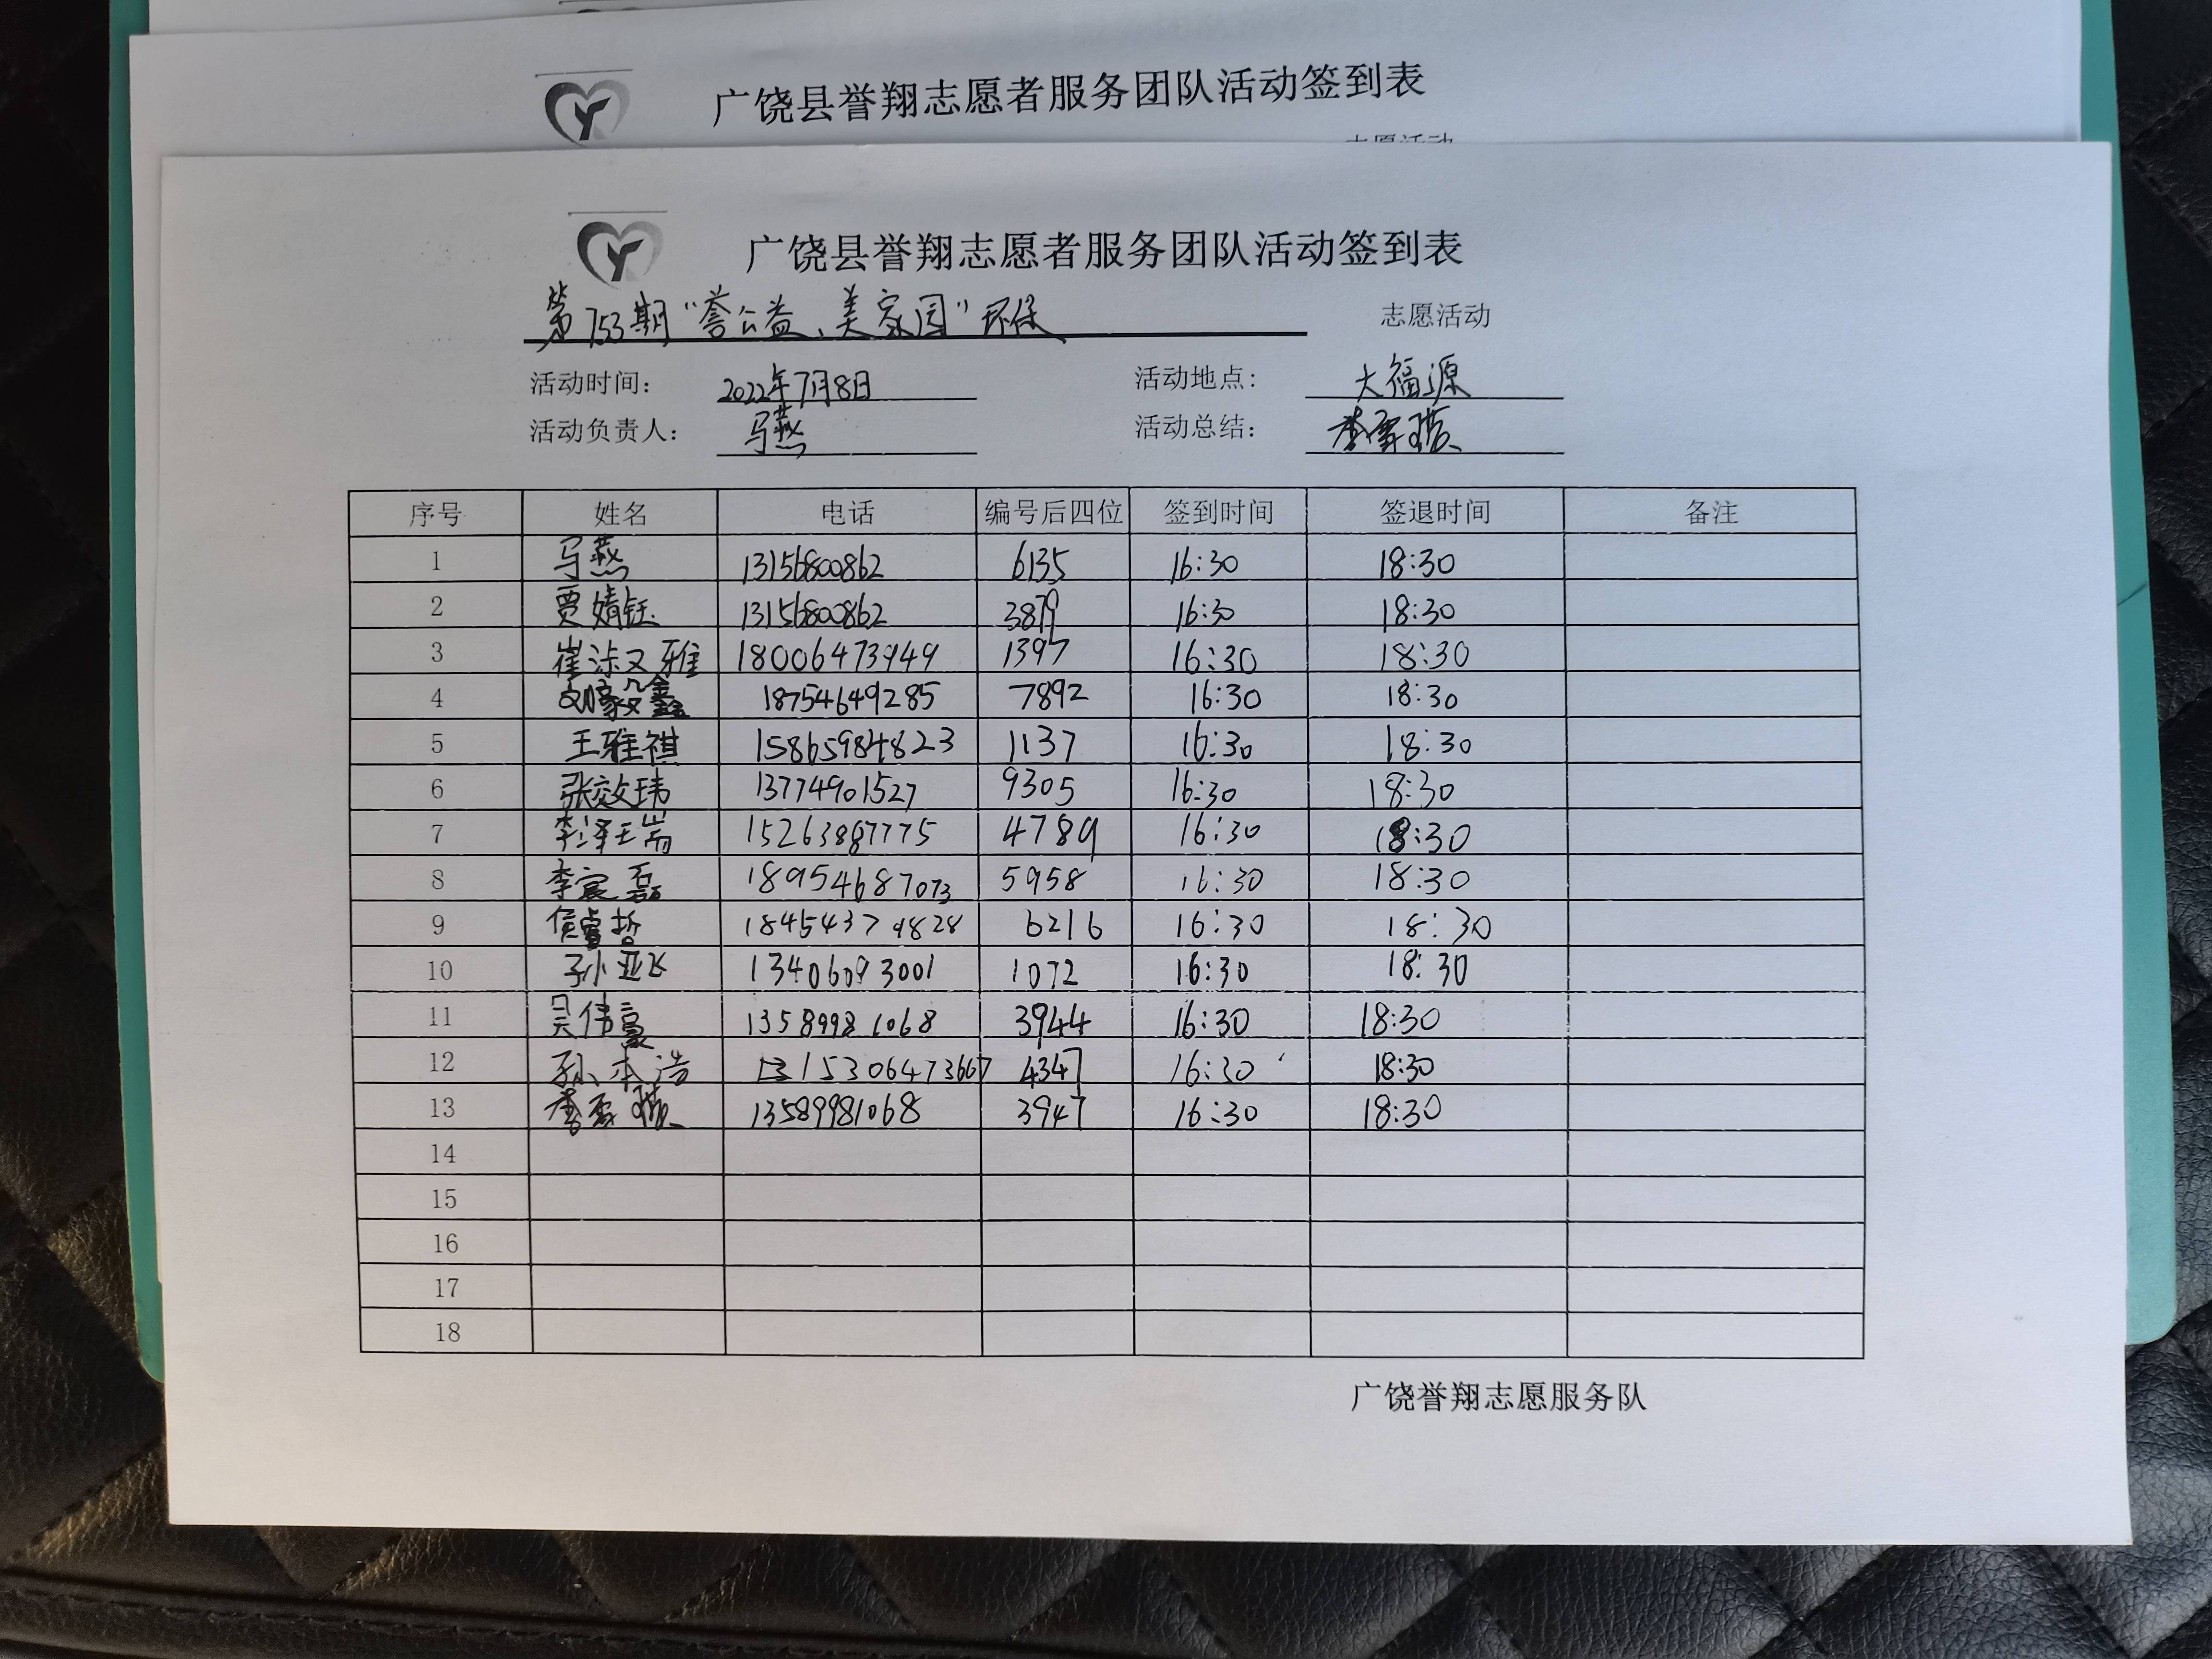 广饶县誉翔志愿者服务团队活动签到表
志愿活动
广饶县誉翔志愿者服务团队活动签到表
第753期“誉公益、美家园”环保 志愿活动
活动时间： 2022年7月8日 活动地点： 大福源
活动负责人： 马燕 活动总结： 李
序号 姓名 电话 编号后四位 签到时间 签退时间 备注
1 马燕 13156800862 6135 16:30 18:30
2 贾婧钰 13156800862 3879 16:30 18:30
3 崔淑雅 18006473949 1397 16:30 18:30
4 刘毅鑫 18754649285 7892 16:30 18:30
5 王雅祺 15865984823 1137 16:30 18:30
6 张效玮 13774901527 9305 16:30 18:30
7 李泽瑞 15263887775 4789 16:30 18:30
8 李宸磊 18954687073 5958 16:30 18:30
9 侯睿哲 18454379828 6216 16:30 18:30
10 孙亚飞 13406093001 1072 16:30 18:30
11 吴伟豪 13589981068 3944 16:30 18:30
12 孙本浩 15306473667 4347 16:30 18:30
13 李 13589981068 3947 16:30 18:30
14
15
16
17
18
广饶誉翔志愿服务队